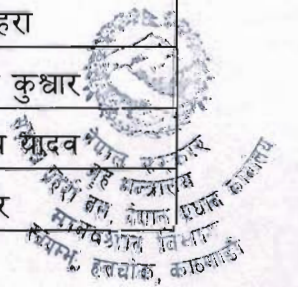 हरा
कुश्वार
यादव
र
नेपाल सरकार
गृह मन्त्रालय
प्रहरी बल, नेपाल प्रधान कार्यालय
मानवश्रोत विभाग
स्वयम्भू, हलचोक, काठमाडौं